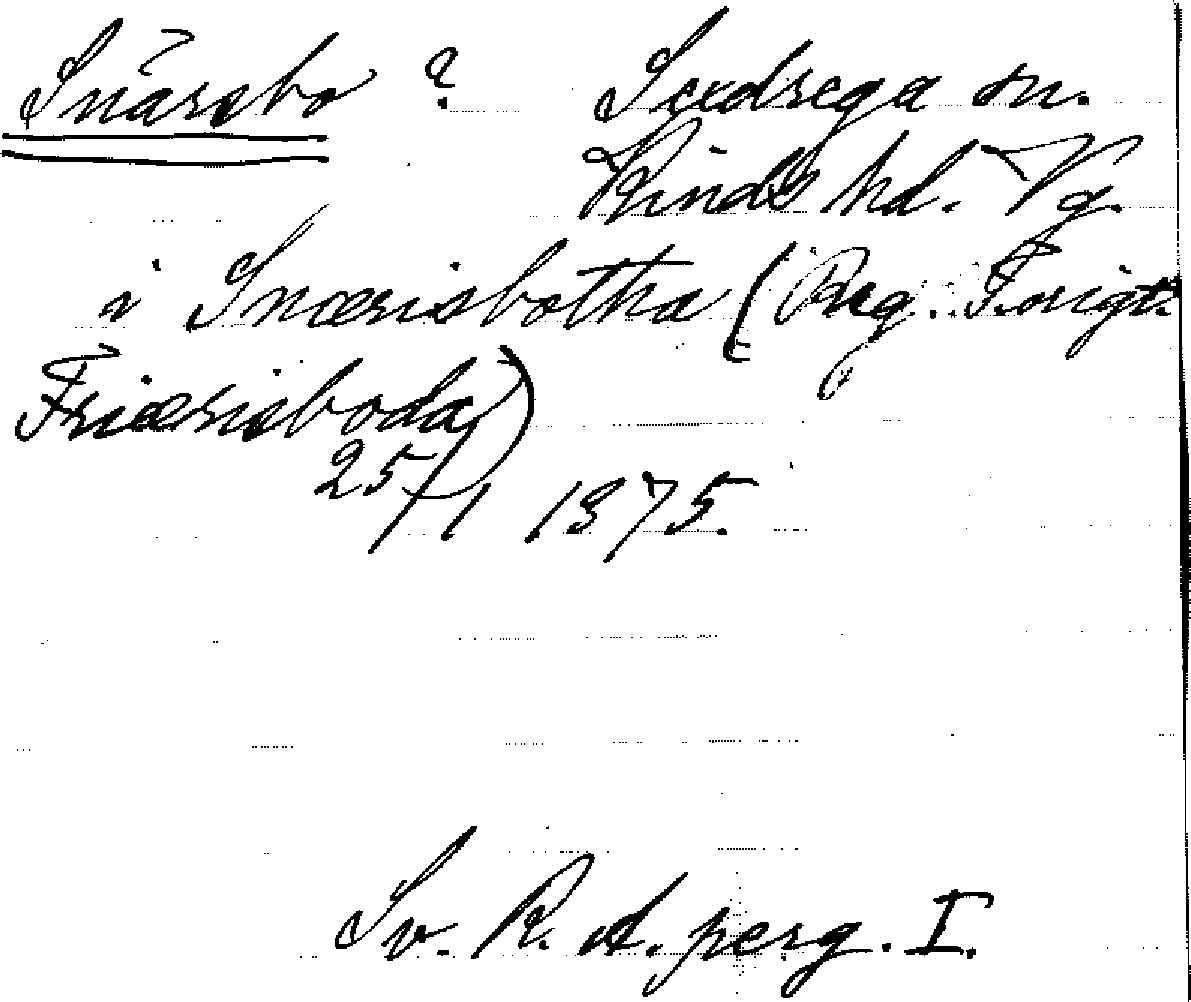 Snärsbo ? Sexdrega sn.
Kinds hd. Vg.
i Snærisbotha (Reg. Torigt.
Friærisboda)
25/1 1375.
Sv. R. A. perg. I.